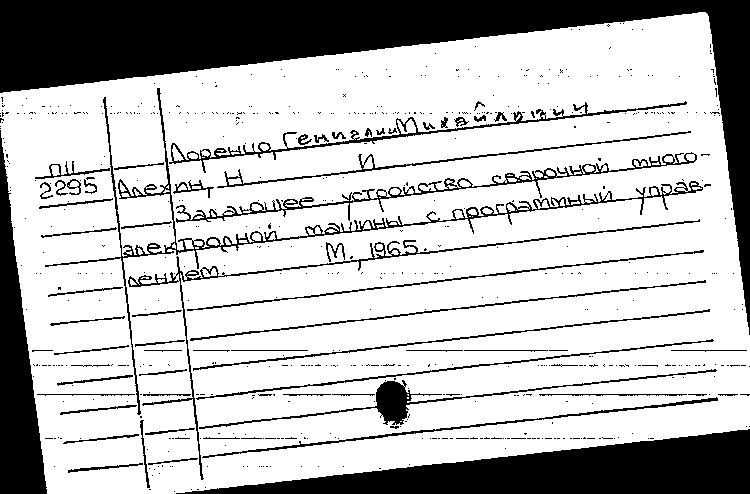 Лоренцо, Михайлович
П11
2295 Алехин, Н И
Задающее устройство сварочной много-
электродной машины с программный управ-
лением. М., 1965.